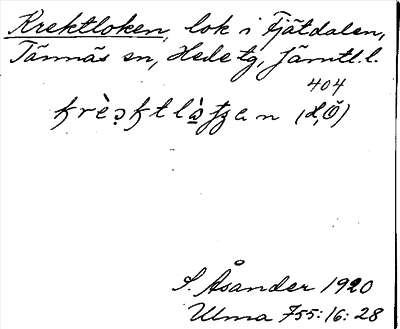 Krektloken, lok i Fjätdalen,
Tännäs sn, Hede tg, Jämtl. l.
404
S. Åsander 1920
Ulma 755:16:28